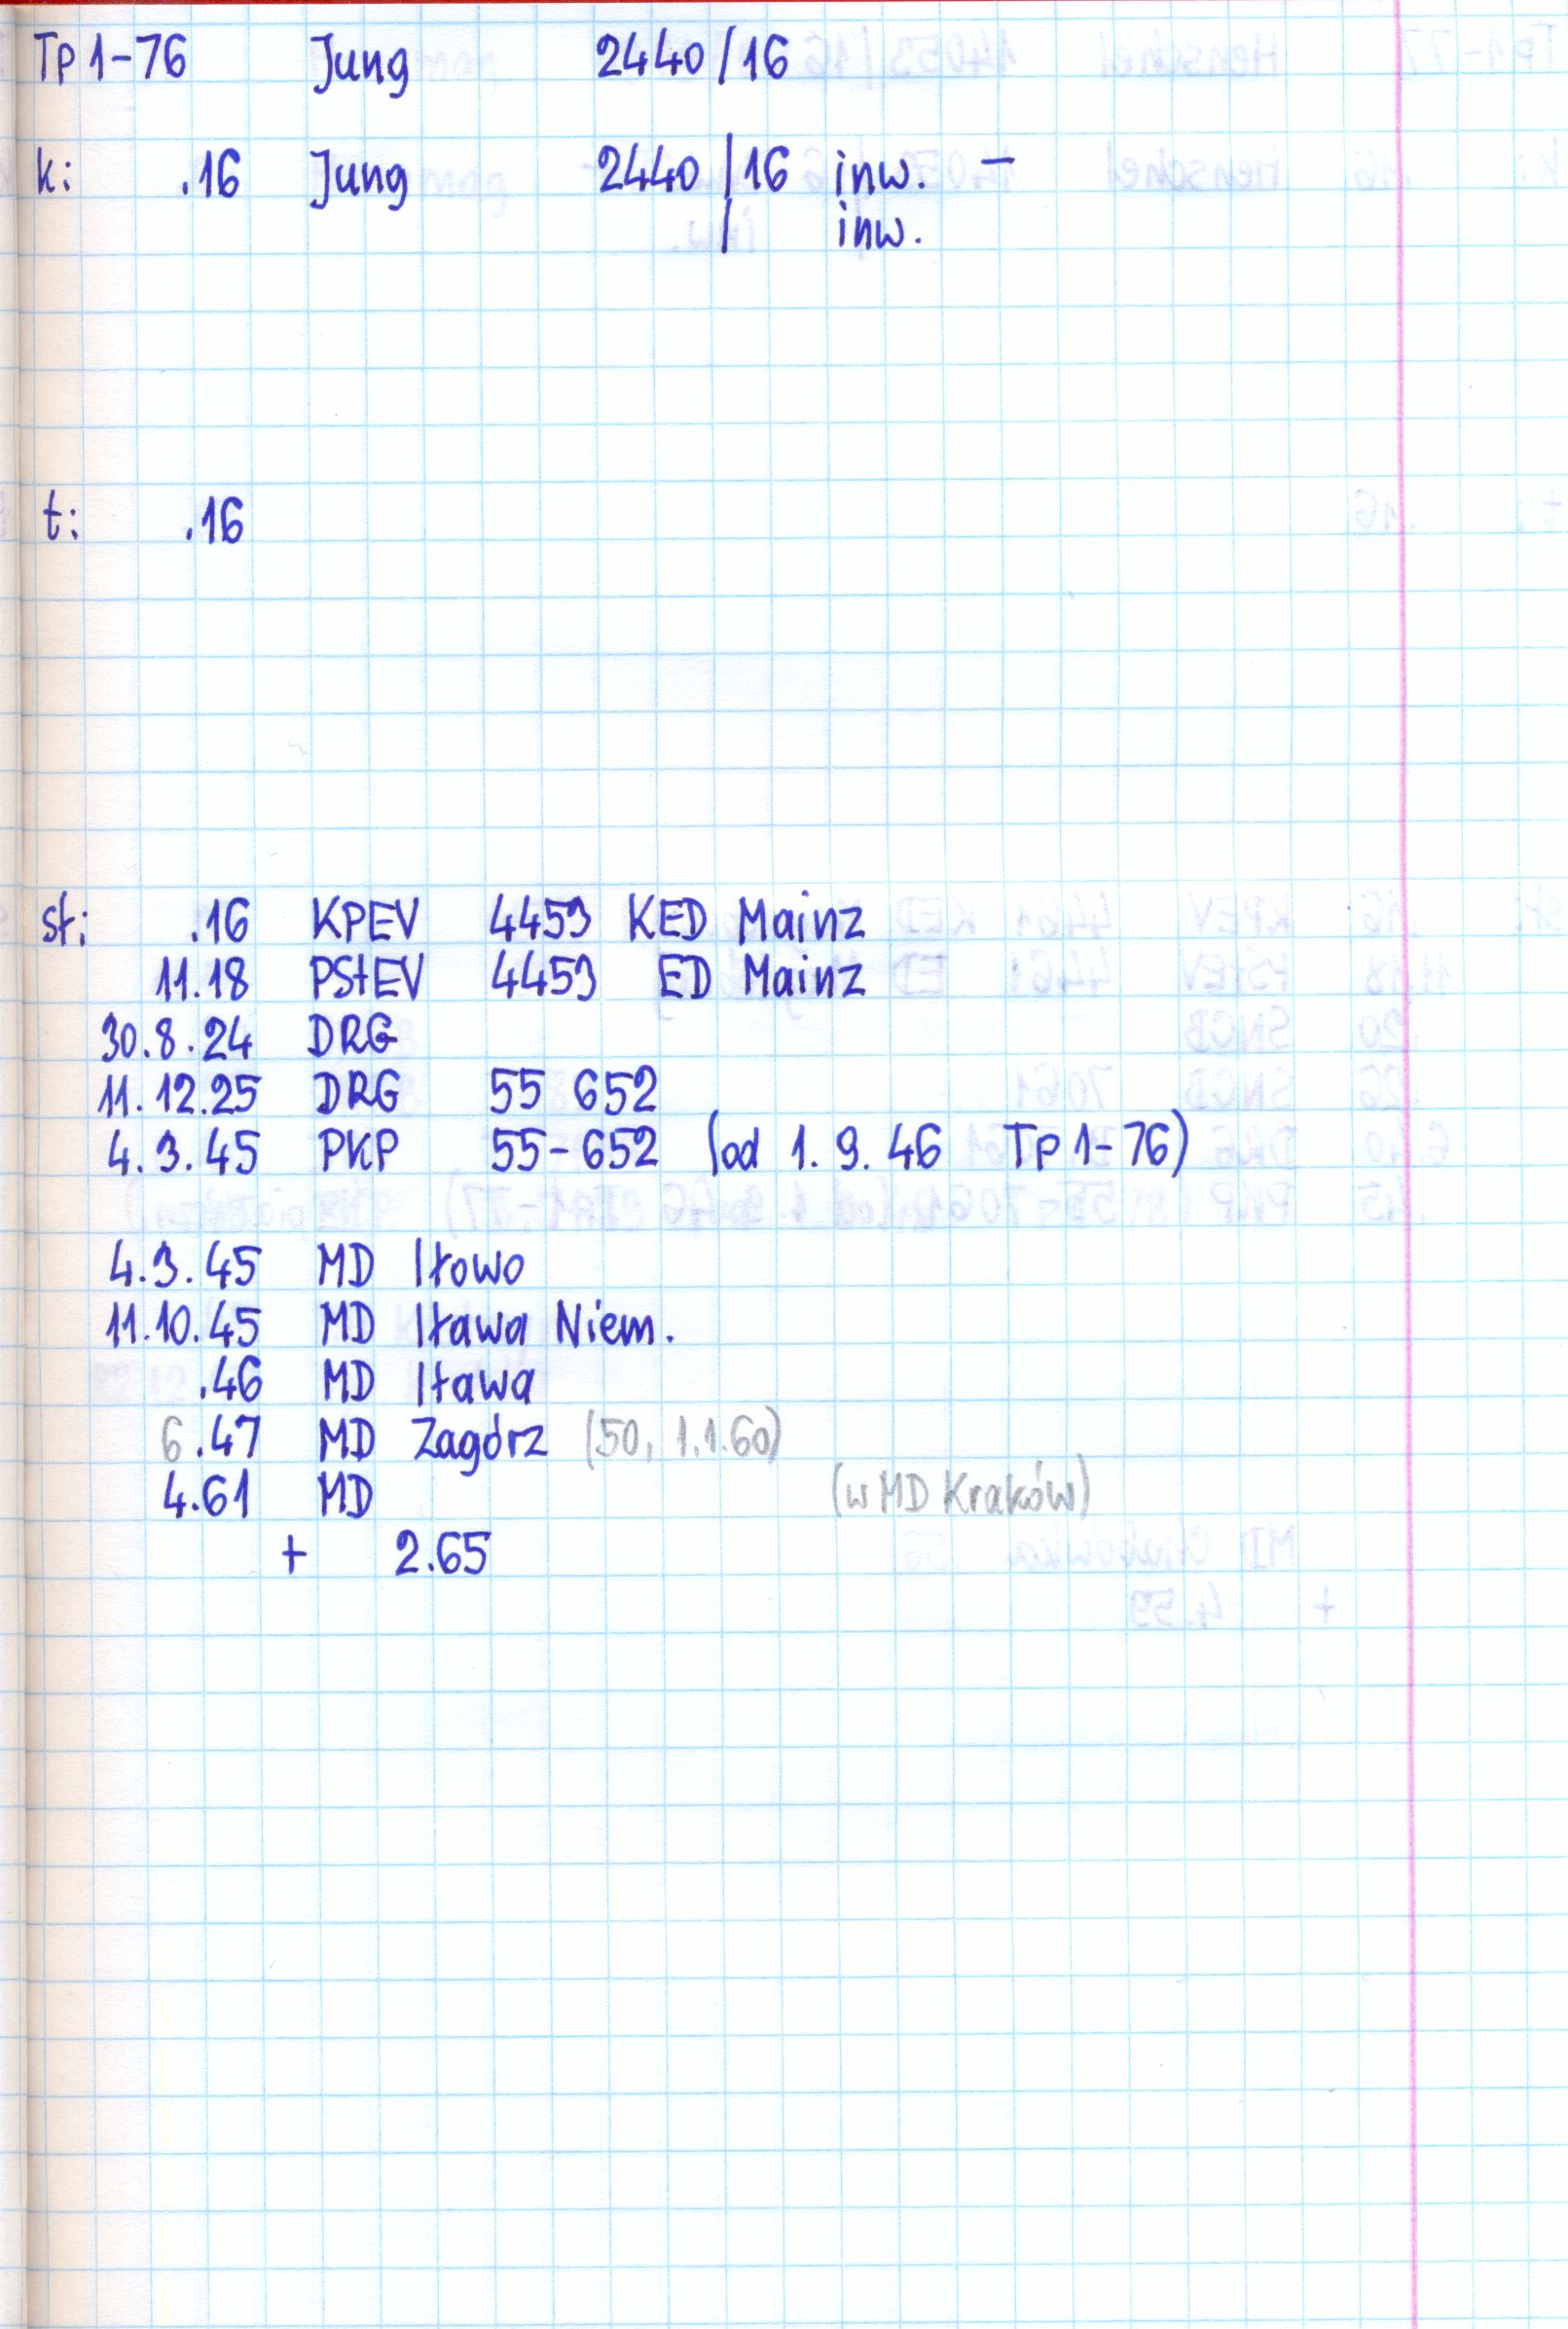 Tp 1-76 Jung 2440/16
k: .16 Jung 2440/16 inw. –
/ inw.
t: .16
sł: .16 KPEV 4459 KED Mainz
11.18 PStEV 4459 ED Mainz
30.8.24 DRG
11.12.25 DRG 55 652
4.3.45 PKP 55-652 (od 1.9.46 Tp 1-76)
4.3.45 MD Iłowo
11.10.45 MD Iława Niem.
.46 MD Iława
6.47 MD Zagórz (50, 1.1.60)
4.61 MD (w MD Kraków)
+ 2.65